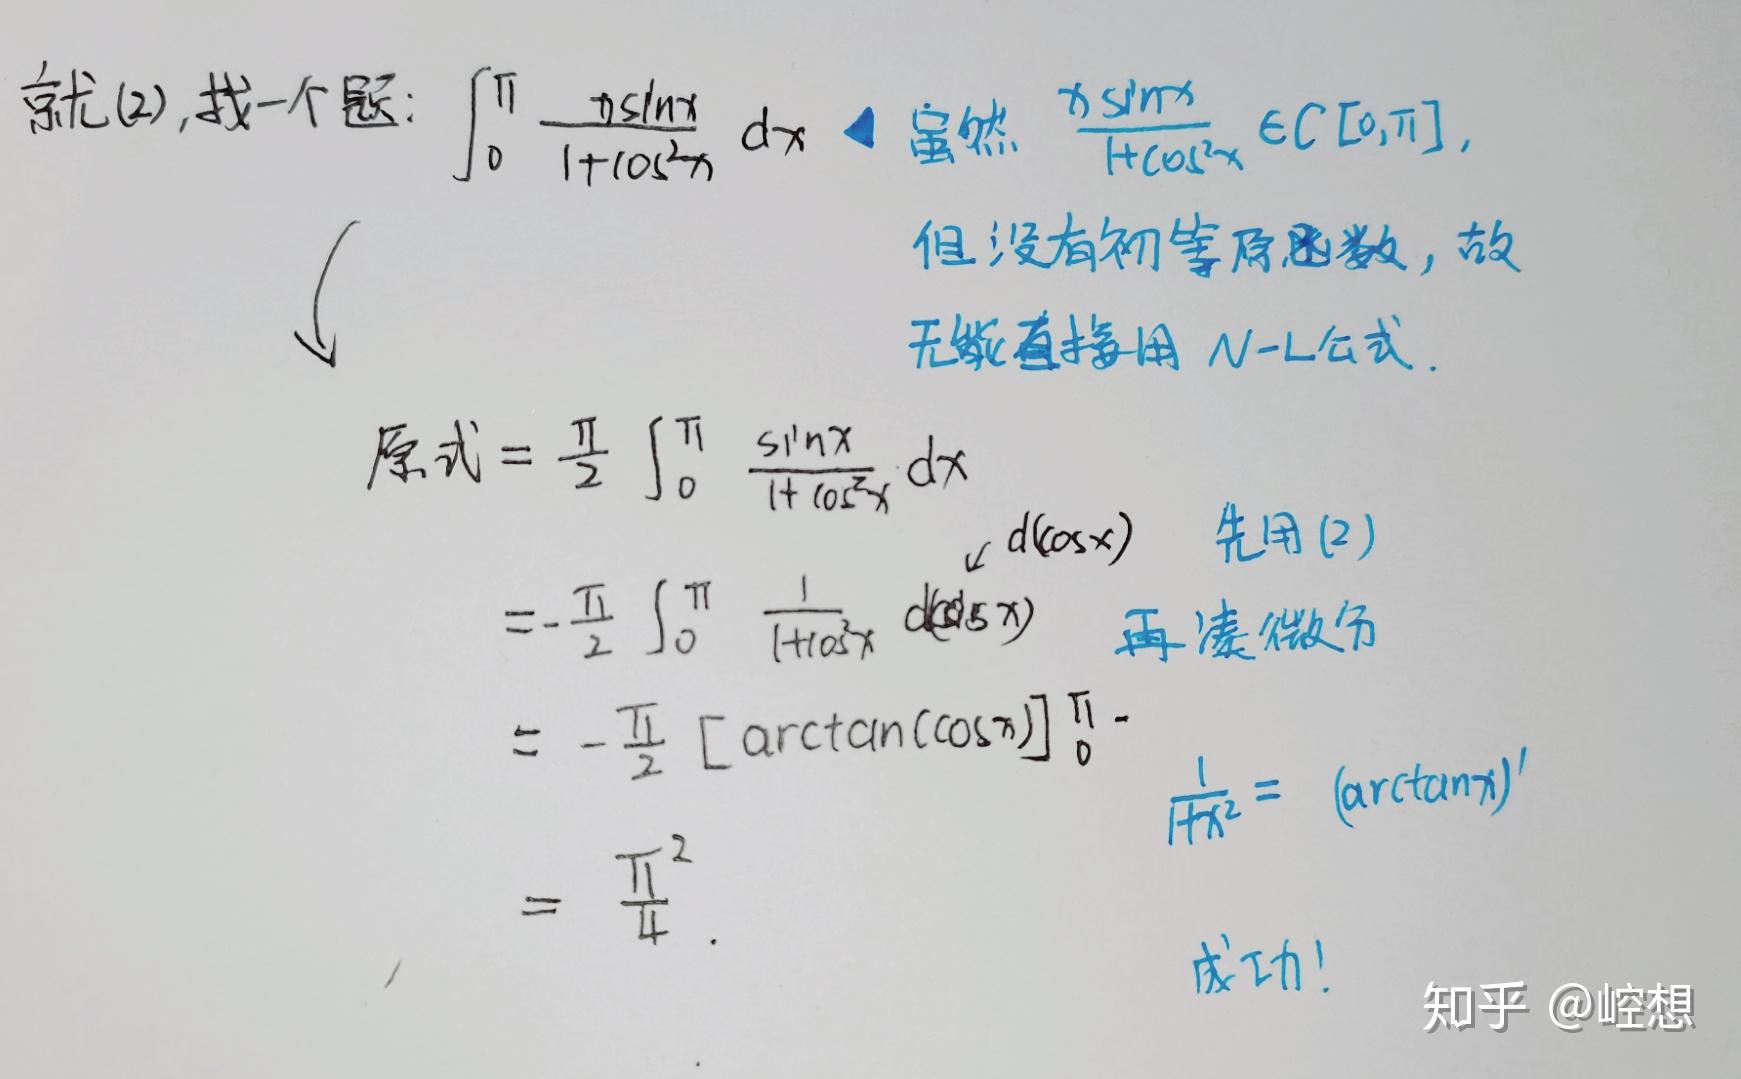 就(2),找一个题: ∫₀^π xsinx/(1+cos²x) dx ◀ 虽然 xsinx/(1+cos²x) ∈C[0,π],
但没有初等原函数,故
无能直接用 N-L公式.
原式 = π/2 ∫₀^π sinx/(1+cos²x) dx
d(cosx) 先用(2)
=-π/2 ∫₀^π 1/(1+cos²x) d(cosx) 再凑微分
= -π/2 [arctan(cosx)]₀^π -
1/(1+x²) = (arctanx)'
= π²/4 .
成功!
知乎 @崆想